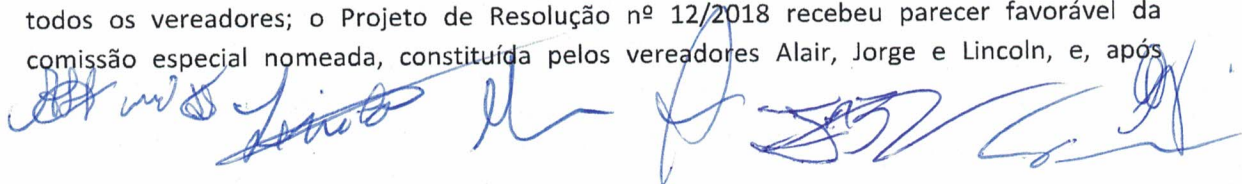 todos os vereadores; o Projeto de Resolução nº 12/2018 recebeu parecer favorável da
comissão especial nomeada, constituída pelos vereadores Alair, Jorge e Lincoln, e, após